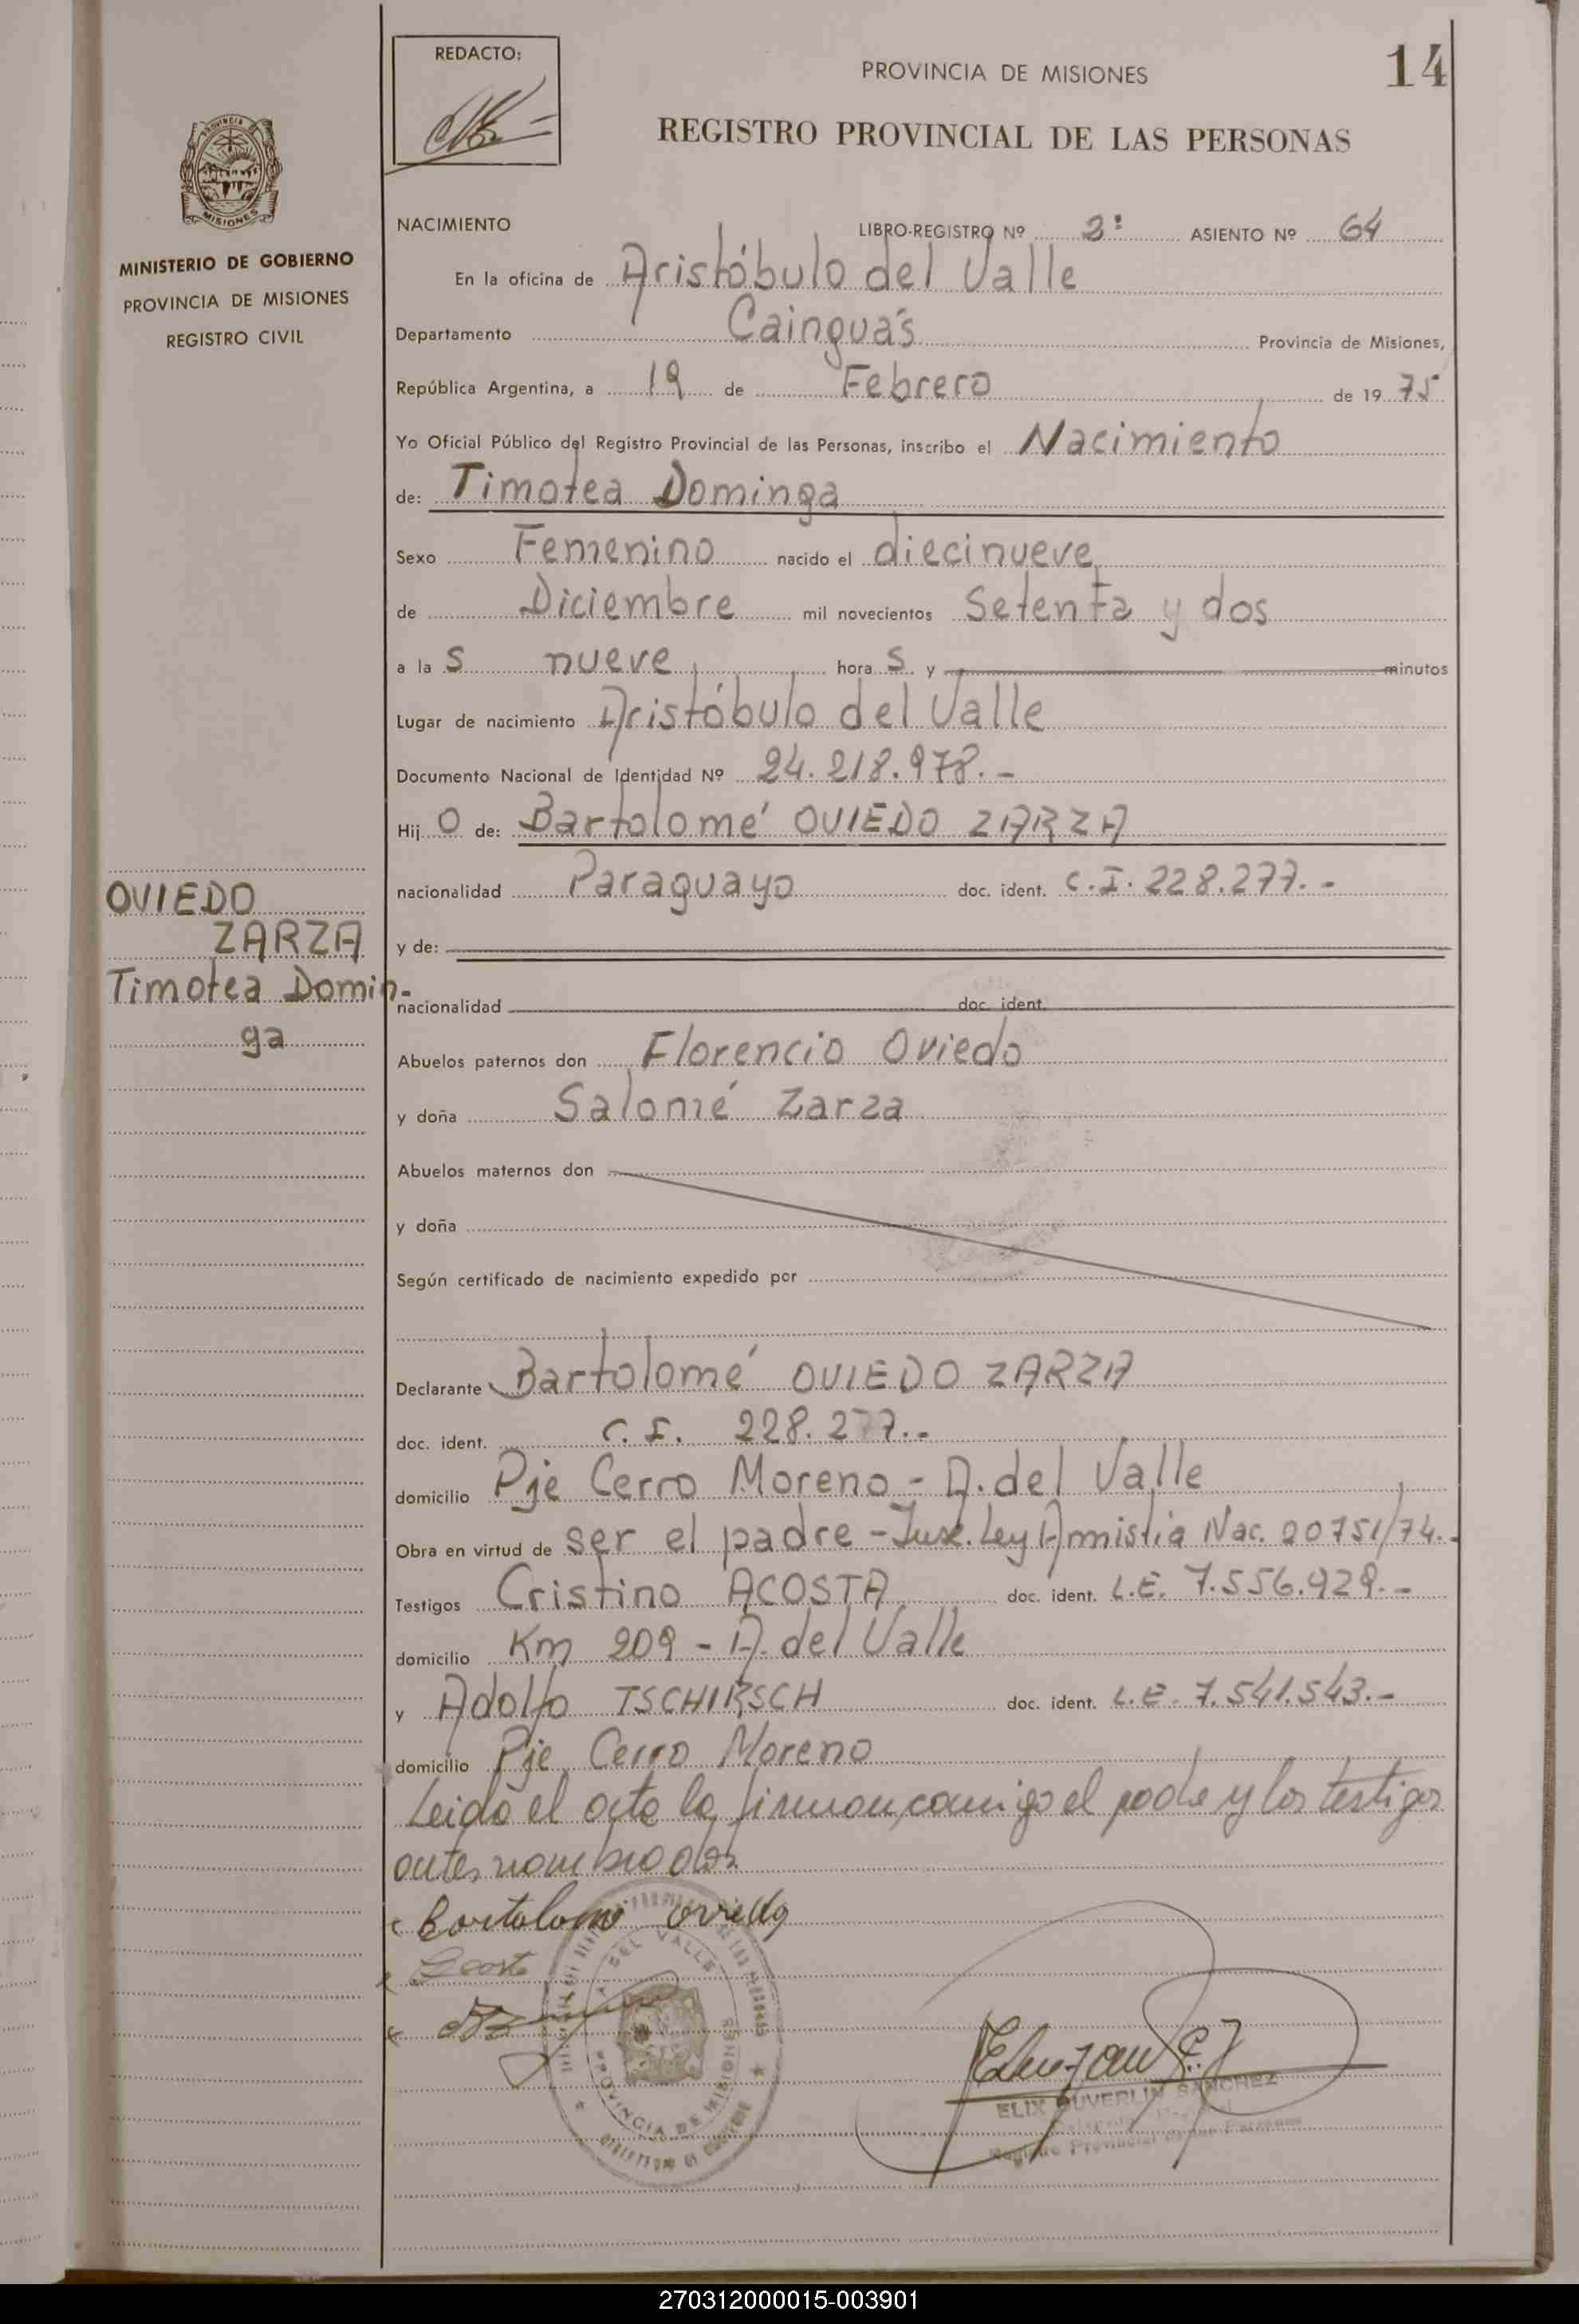 14
REDACTO:
PROVINCIA DE MISIONES
REGISTRO PROVINCIAL DE LAS PERSONAS
PROVINCIA DE
MISIONES
MINISTERIO DE GOBIERNO
PROVINCIA DE MISIONES
REGISTRO CIVIL
NACIMIENTO LIBRO-REGISTRO Nº 2º ASIENTO Nº 64
En la oficina de Aristóbulo del Valle
Departamento Cainguás Provincia de Misiones,
República Argentina, a 19 de Febrero de 19 75
Yo Oficial Público del Registro Provincial de las Personas, inscribo el Nacimiento
de: Timotea Dominga
Sexo Femenino nacido el diecinueve
de Diciembre mil novecientos Setenta y dos
a la s nueve hora s y minutos
Lugar de nacimiento Aristóbulo del Valle
Documento Nacional de Identidad Nº 24.218.978.-
Hij o de: Bartolomé OVIEDO ZARZA
nacionalidad Paraguayo doc. ident. C.I. 228.277.-
OVIEDO
ZARZA
Timotea Domin-
ga
y de:
nacionalidad doc. ident.
Abuelos paternos don Florencio Oviedo
y doña Salomé Zarza
Abuelos maternos don
y doña
Según certificado de nacimiento expedido por
Declarante Bartolomé OVIEDO ZARZA
doc. ident. C.I. 228.277.-
domicilio Pje Cerro Moreno - A. del Valle
Obra en virtud de ser el padre - Ley Amistia Nac. 20751/74.-
Testigos Cristino ACOSTA doc. ident. L.E. 7.556.929.-
domicilio Km 209 - A. del Valle
y Adolfo TSCHIRSCH doc. ident. L.E. 7.541.543.-
domicilio Pje Cerro Moreno
Leida el acta la firman conmigo el padre y los testigos
antes nombrados
Bartolome Oviedo
Acosta
DEL VALLE
PROVINCIA DE MISIONES
ELIX DUVERLIN SANCHEZ
Registro Provincial de las Personas
270312000015-003901